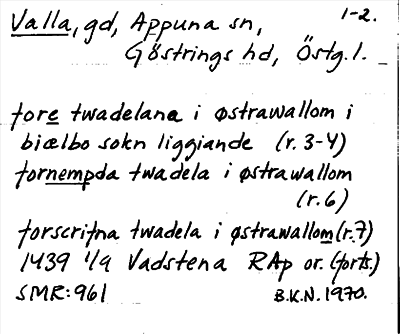 1-2.
Valla, gd, Appuna sn,
Göstrings hd, Östg. l.
fore twadelana i østrawallom i
biælbo sokn liggiande (r. 3-4)
fornempda twadela i østrawallom
(r. 6)
forscrifna twadela i østrawallom (r. 7)
1439 1/9 Vadstena RAp or. (forts.)
SMR: 961 B.K.N. 1970.